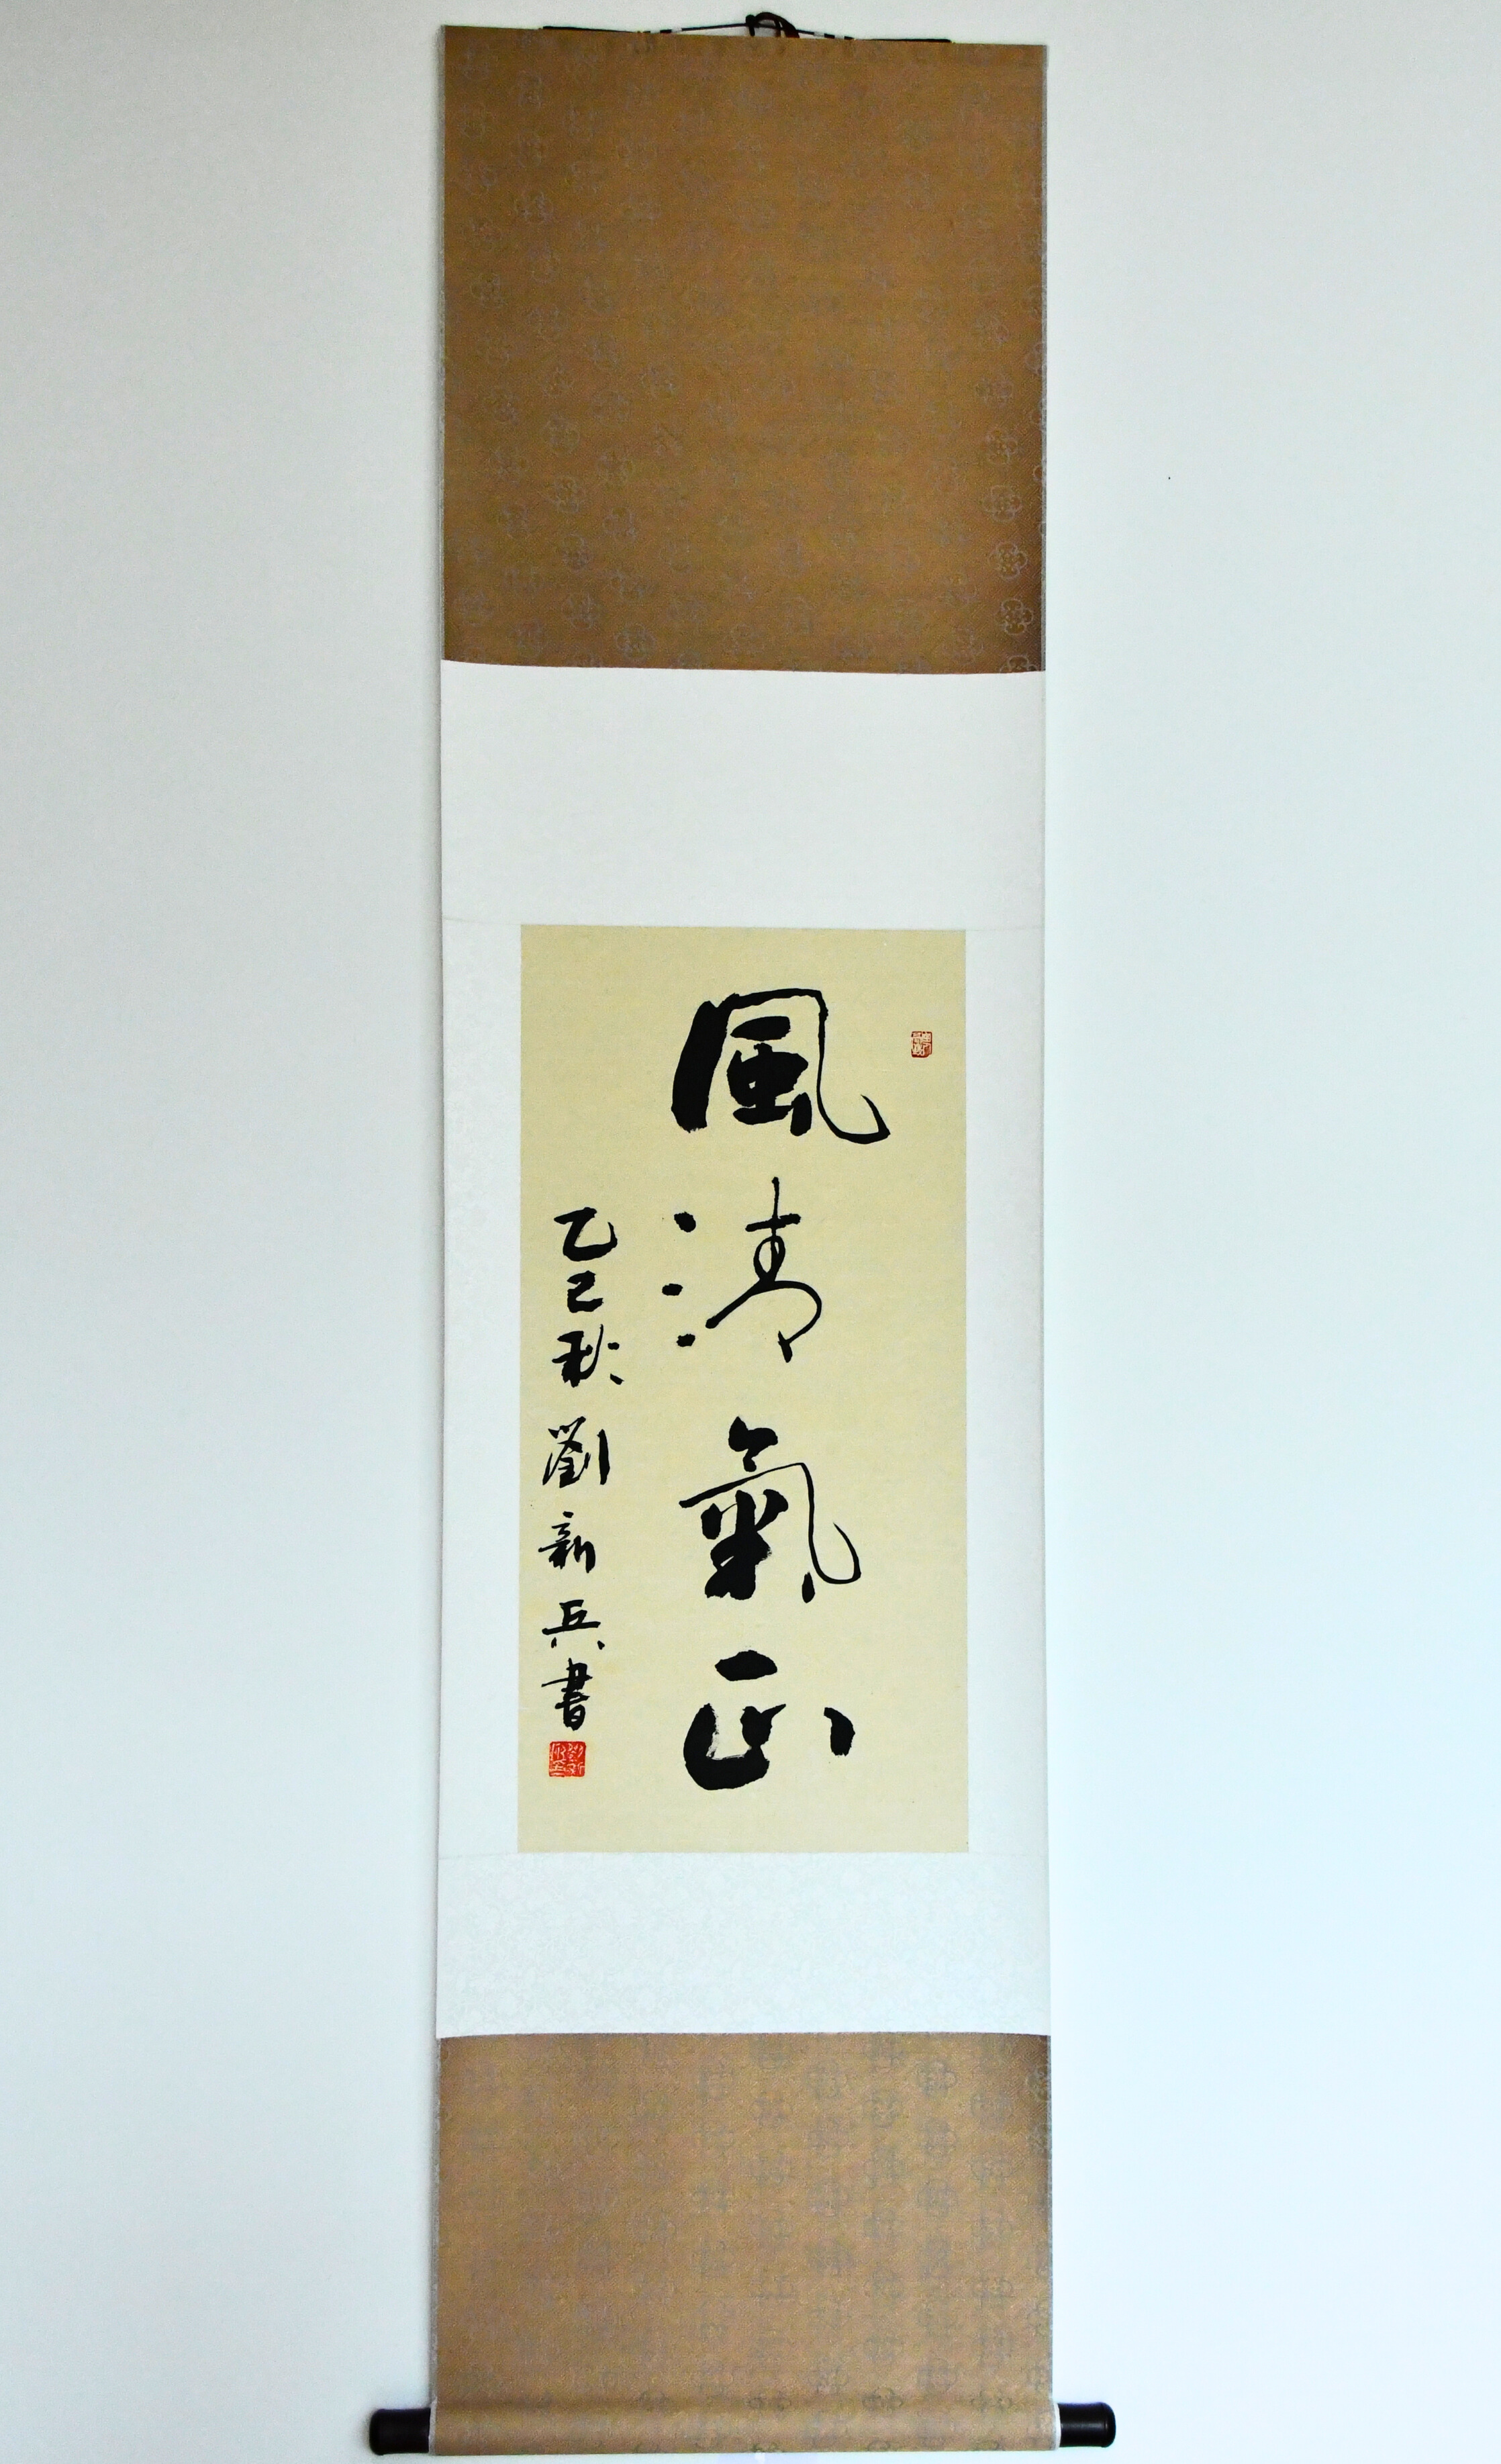 風清氣正
乙巳秋 劉新兵書